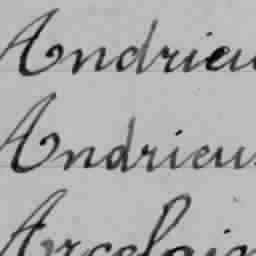 Andrieu
Andrieu
Arcelain